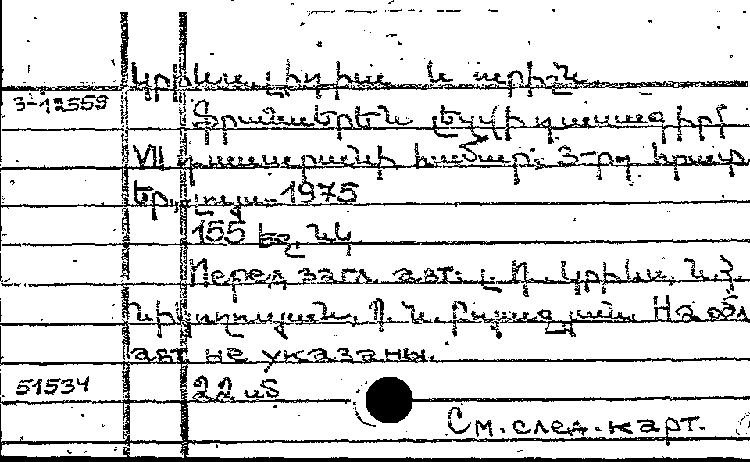 Կրինե, Լիդիա և ուրիշն.
3-12559
Ֆրանսերեն լեզվի դասագիրք
VII դասարանի համար: 3-րդ հրատ.
Եր., Լույս, 1975
155 եջ. նկ
Перед загл. авт: Լ. Ո. Կրինե, Ն. Հ.
На обл
авт не указаны.
51534
22 կ
См. след. карт.